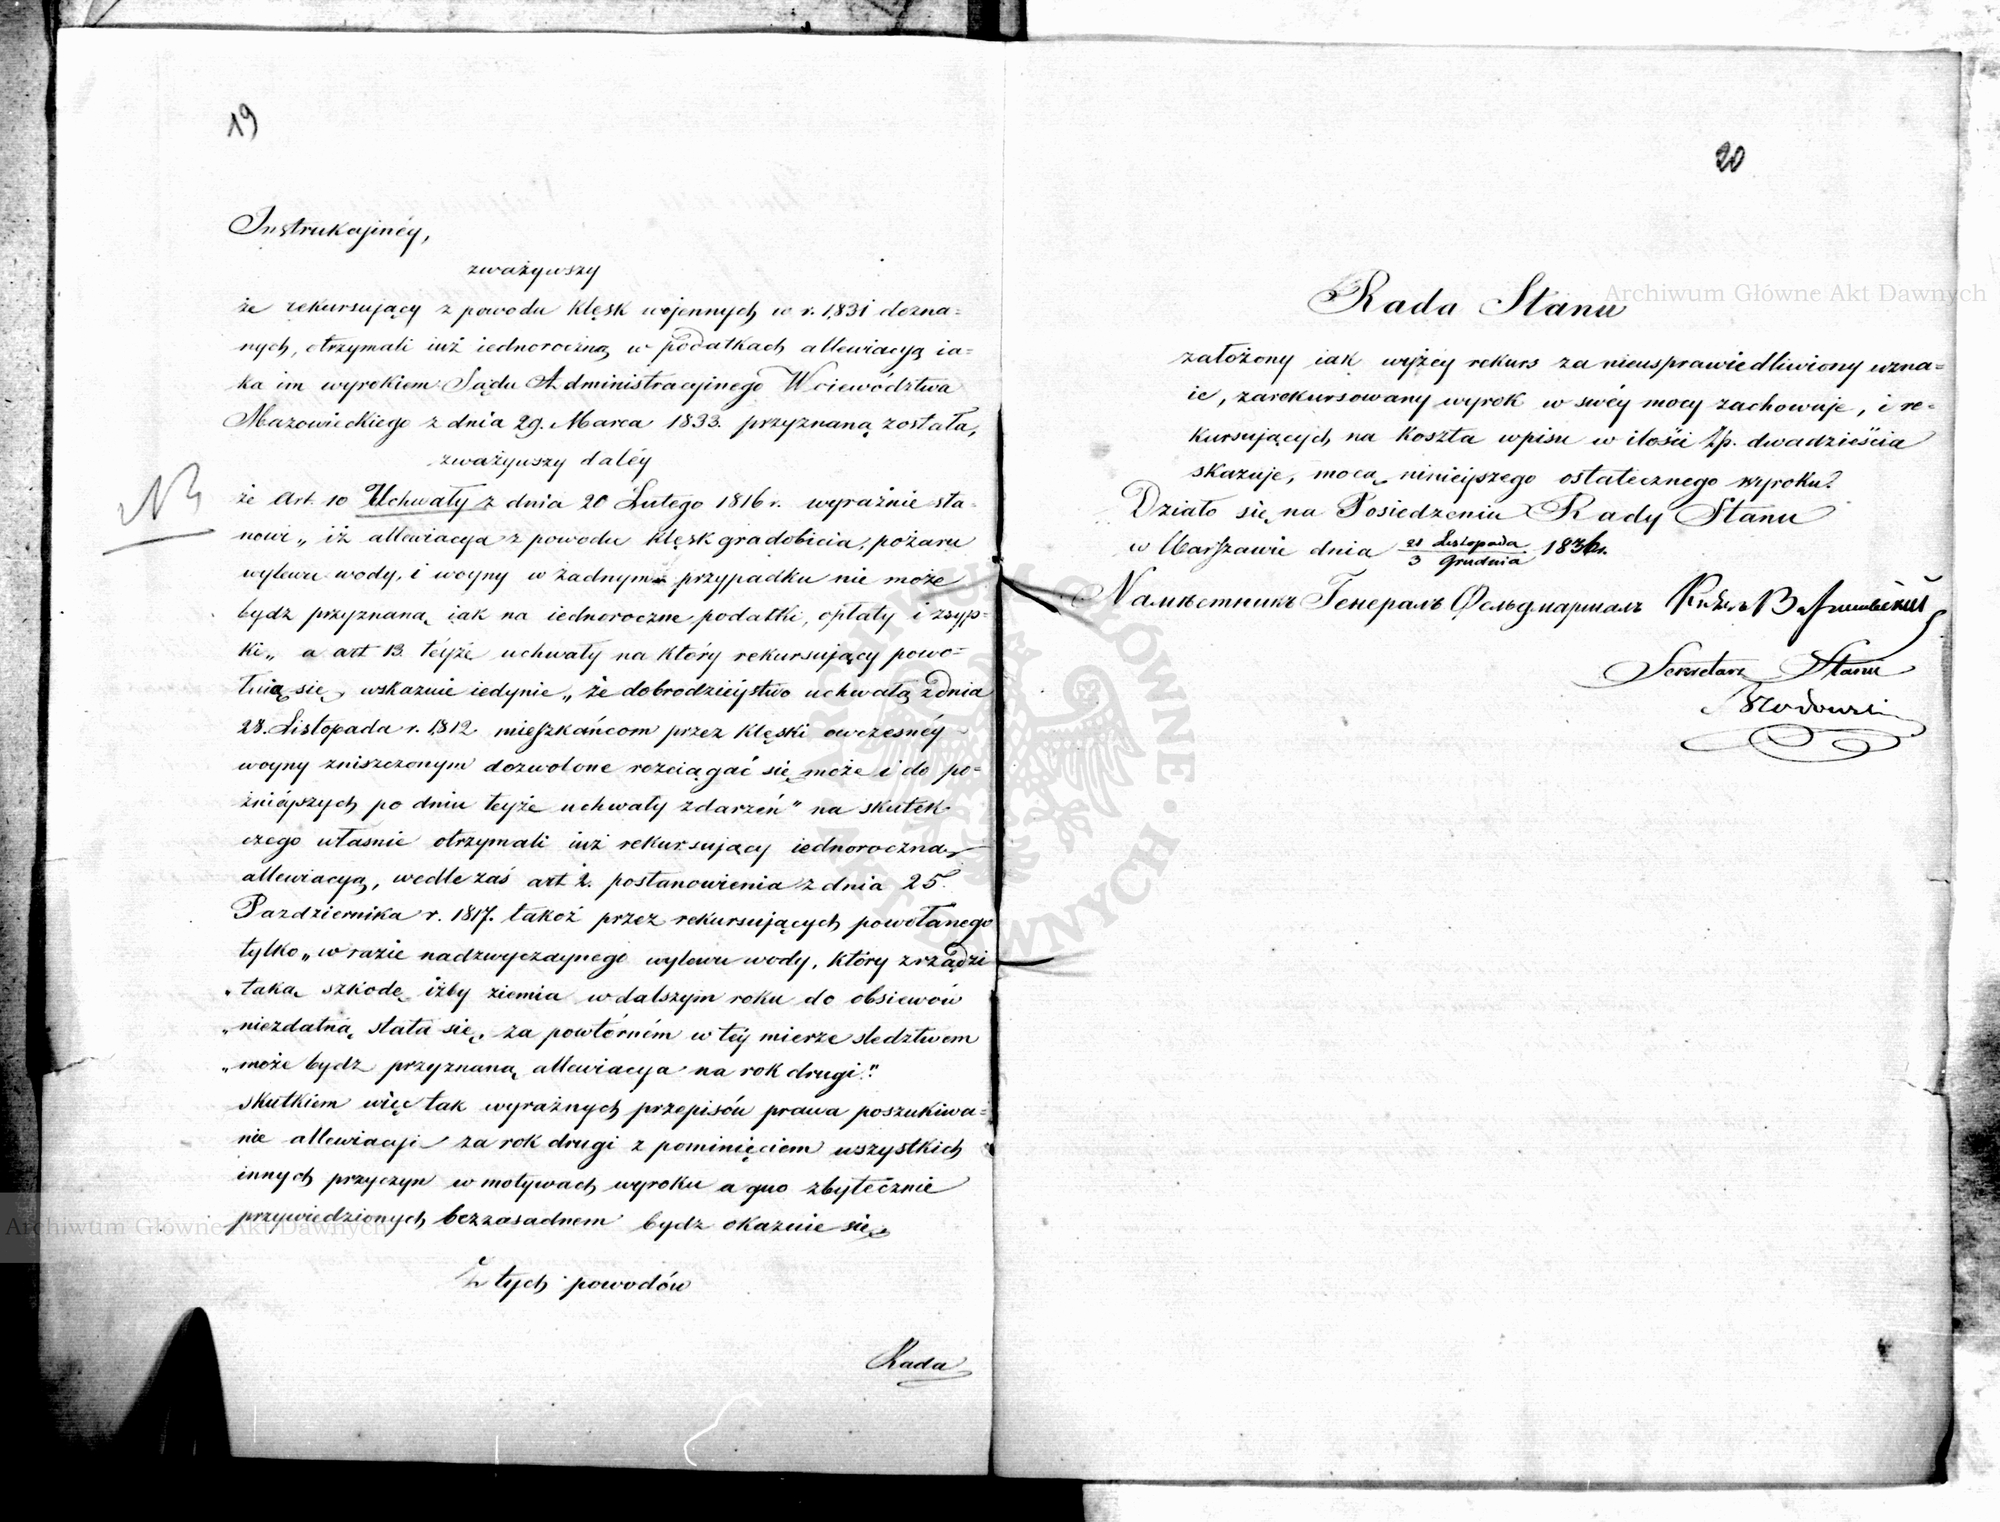 19
Instrukcyinéy,
zważywszy
że rekursujący z powodu klęsk wojennych w r. 1831 dozna=
nych, otrzymali iuż iednoroczną w podatkach allewiacyą ia=
ka im wyrokiem Sądu Administracyinego Woiewództwa
Mazowieckiego z dnia 29. Marca 1833. przyznaną została,
zważywszy daléy
że Art. 10 Uchwały z dnia 20 Lutego 1816 r. wyraźnie sta=
nowi „ iż allewiacya z powodu klęsk gradobicia, pożaru
wylewu wody, i woyny w żadnym przypadku nie może
bydź przyznaną iak na iednoroczne podatki, opłaty i zsyp=
ki„ a art 13. teyże uchwały na który rekursujący powo=
łuią się, wskazuie iedynie „ że dobrodzieystwo uchwałą z dnia
28. Listopada r. 1812 mieszkańcom przez klęski owczesnéy
woyny zniszczonym dozwolone rozciągać się może i do po=
źnieyszych po dniu teyże uchwały zdarzeń" na skutek
czego właśnie otrzymali iuż rekursujący iednoroczną
allewiacyą, wedle zaś art 2. postanowienia z dnia 25.
Pazdziernika r. 1817. takoż przez rekursujących powołanego
tylko „ w razie nadzwyczaynego wylewu wody, który zrządzi
„ taką szkodę iżby ziemia w dalszym roku do obsiewów
„ niezdatną stała się, za powtórném w téy mierze sledztwem
„ może bydź przyznaną allewiacya na rok drugi."
skutkiem więc tak wyraźnych przepisów prawa poszukiwa=
nie allewiacyi za rok drugi z pominięciem wszystkich
innych przyczyn w motywach wyroku a quo zbytecznie
przywiedzionych bezzasadnem bydź okazuie się
Z tych powodów
Rada
20
Rada Stanu
założony iak wyżéy rekurs za nieusprawiedliwiony uzna=
ie, zarekursowany wyrok w swéy mocy zachowuje, i re=
kursujących na koszta wpisu w ilości Zp. dwadzieścia
skazuje, mocą ninieyszego ostatecznego wyroku.
Działo się na Posiedzeniu Rady Stanu
w Warszawie dnia 21 Listopada / 3 Grudnia 1836 r.
Намѣстникъ Генералъ Фельдмаршалъ Князь Варшавскій
Sekretarz Stanu
Brzozowski
Archiwum Główne Akt Dawnych
Archiwum Główne Akt Dawnych
ARCHIWUM GŁÓWNE AKT DAWNYCH